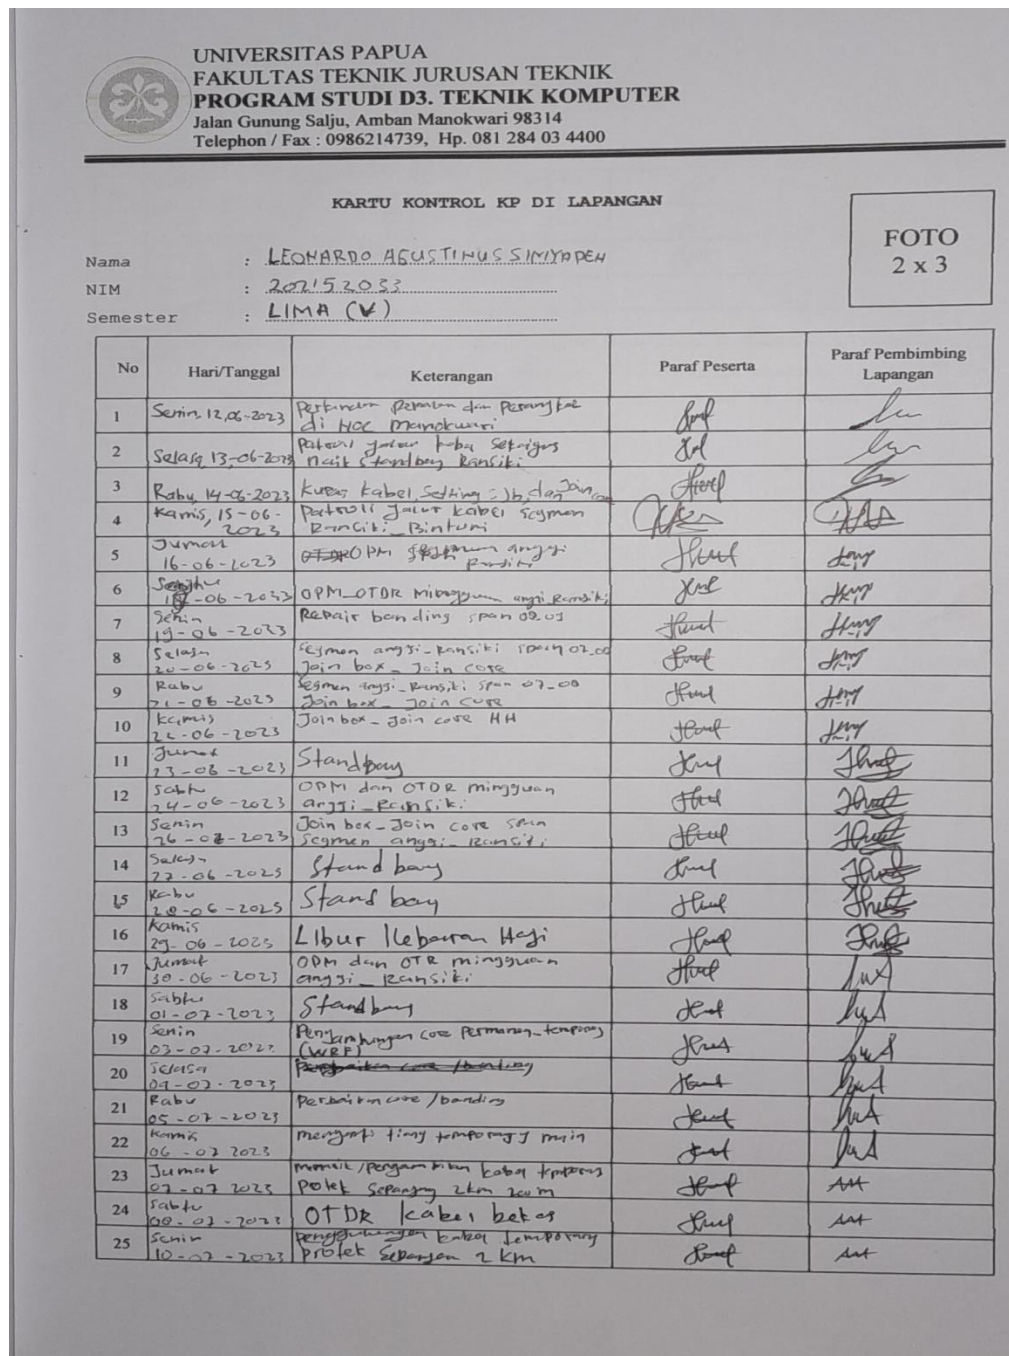 UNIVERSITAS PAPUA
FAKULTAS TEKNIK JURUSAN TEKNIK
PROGRAM STUDI D3. TEKNIK KOMPUTER
Jalan Gunung Salju, Amban Manokwari 98314
Telephon / Fax : 0986214739, Hp. 081 284 03 4400
KARTU KONTROL KP DI LAPANGAN
FOTO
2 x 3
Nama : LEONARDO AGUSTINUS
NIM : 202152033
Semester : LIMA (V)
No Hari/Tanggal Keterangan Paraf Peserta Paraf Pembimbing Lapangan
1 Senin, 12,06-2023 dan
di NOC Manokwari
2 Selasa 13,-06-2023 jalur
Standbay Ransiki
3 Rabu, 14-06-2023 Kupas Kabel, dan Join
4 Kamis, 15-06-2023 Patroli Jalur Kabel Segmen
Ransiki_Binturi
5 Jumat
16-06-2023 OPM anggi
6
-06-2023 OPM_OTDR anggi_Ransiki
7 Senin
19-06-2023 Repair banding span 02.03
8 Selasa
20-06-2023 Segmen anggi-Ransiki span
Join box_Join core
9 Rabu
21-06-2023 Segmen anggi_Ransiki span
Join box_ Join core
10 Kamis
22-06-2023 Join box_Join core HH
11 Jumat
23-06-2023 Standbay
12 Sabtu
24-06-2023 OPM dan OTDR mingguan
anggi_Ransiki
13 Senin
Join box_Join core span
Segmen anggi_Ransiki
14 Selasa
27-06-2023 Stand bay
15 Rabu
28-06-2023 Stand bay
16 Kamis
29-06-2023 Libur lebaran Haji
17 Jumat
30-06-2023 OPM dan OTR mingguan
anggi_Ransiki
18 Sabtu
01-07-2023 Standbay
19 Senin
03-07-2023 core Permanen_
20 Selasa
-07-2023
21 Rabu
05-07-2023 /banding
22 Kamis
06-07 2023 tiang
23 Jumat
07-07 2023 kabel
2km 200m
24 Sabtu
08-07-2023 OTDR kabel bekas
25 Senin
10-07-2023 kabel temporary
2 km